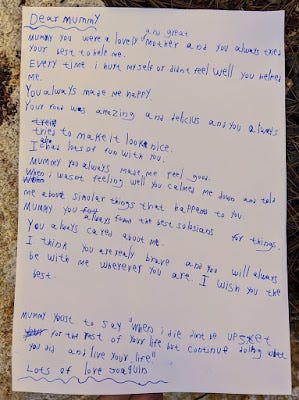 Dear Mummy
and great
Mummy you were a lovely mother and you always tried
your best to help me.
Every time i hurt myself or didnt feel well you helped
me.
You always made me happy.
Your food was amazing and delicius and you always
tried to make it look nice.
I had lots of fun with you.
Mummy you always made me feel good.
When i wasnt feeling well you calmed me down and told
me about similar things that happend to you.
Mummy you always found the best solusians for things.
You always cared about me.
I think you are realy brave and you will always
be with me wherever you are. I wish you the
best.
Mummy youst to say "When i die dont be upset
for the rest of your life but continue doing what
you did and live your life"
Lots of love Joaquin